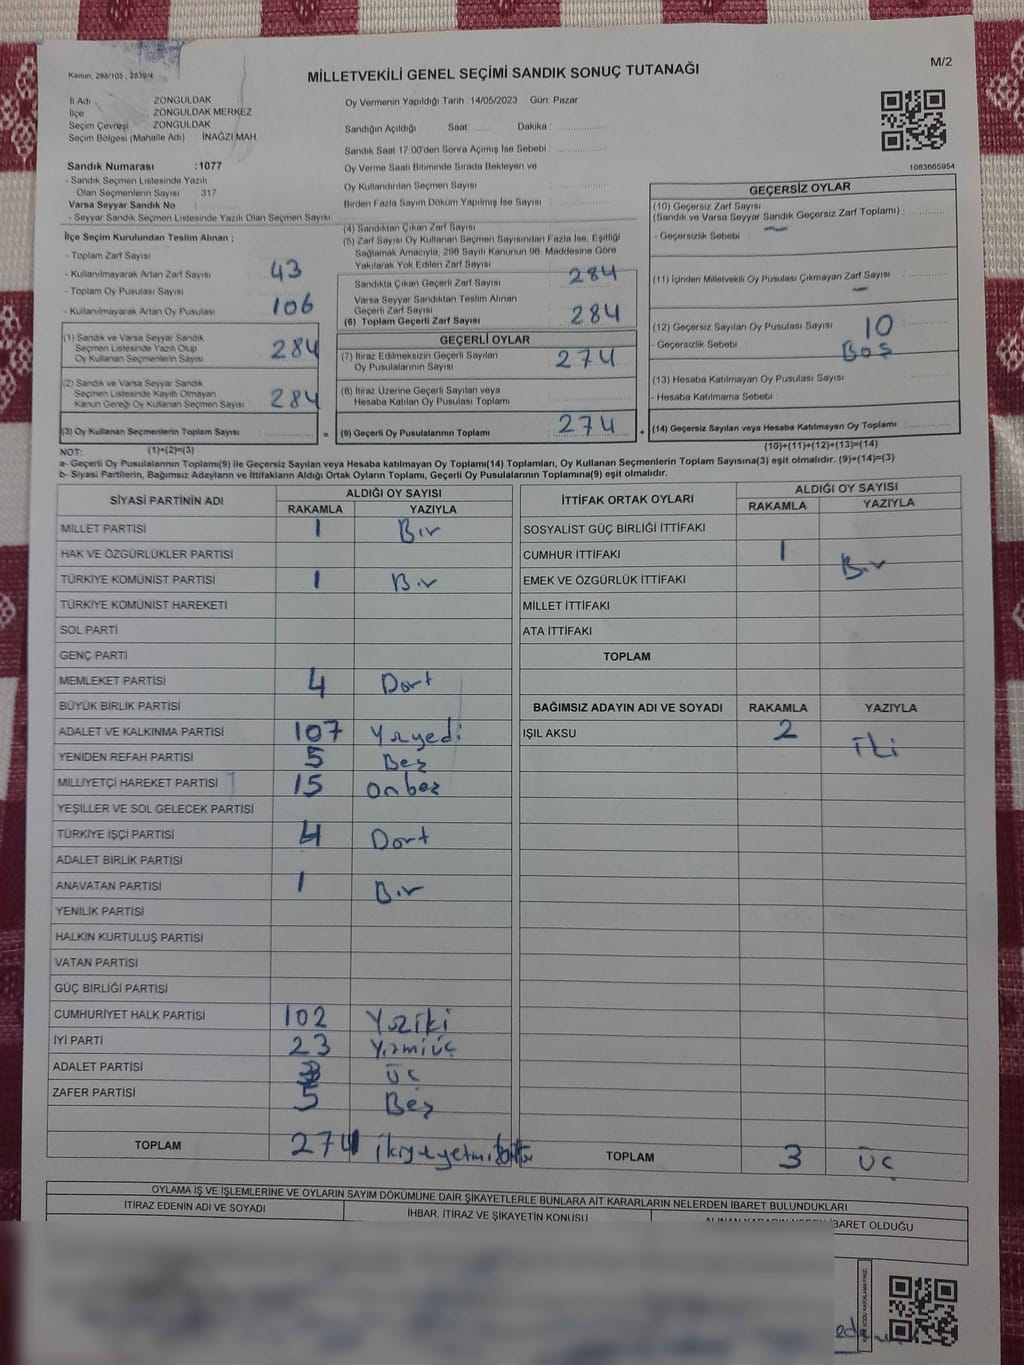 Kanun, 298/105 , 2839/4
MİLLETVEKİLİ GENEL SEÇİMİ SANDIK SONUÇ TUTANAĞI
M/2
İl Adı ZONGULDAK
İlçe ZONGULDAK MERKEZ
Seçim Çevresi ZONGULDAK
Seçim Bölgesi (Mahalle Adı) İNAĞZI MAH.
Oy Vermenin Yapıldığı Tarih : 14/05/2023 Gün: Pazar
Sandığın Açıldığı Saat ....... Dakika : ..............
Sandık Saat 17.00'den Sonra Açımış İse Sebebi : ..............
Oy Verme Saati Bitiminde Sırada Bekleyen ve
Oy Kullandırılan Seçmen Sayısı
Birden Fazla Sayım Döküm Yapılmış İse Sayısı
1083665954
Sandık Numarası : 1077
- Sandık Seçmen Listesinde Yazılı
Olan Seçmenlerin Sayısı 317
Varsa Seyyar Sandık No :
- Seyyar Sandık Seçmen Listesinde Yazılı Olan Seçmen Sayısı
İlçe Seçim Kurulundan Teslim Alınan ;
- Toplam Zarf Sayısı
- Kullanılmayarak Artan Zarf Sayısı 43
- Toplam Oy Pusulası Sayısı
- Kullanılmayarak Artan Oy Pusulası 106
(1) Sandık ve Varsa Seyyar Sandık
Seçmen Listesinde Yazılı Olup
Oy Kullanan Seçmenlerin Sayısı 284
(2) Sandık ve Varsa Seyyar Sandık
Seçmen Listesinde Kayıtlı Olmayan
Kanun Gereği Oy Kullanan Seçmen Sayısı 284
(3) Oy Kullanan Seçmenlerin Toplam Sayısı : =
(4) Sandıktan Çıkan Zarf Sayısı
(5) Zarf Sayısı Oy Kullanan Seçmen Sayısından Fazla İse, Eşitliği
Sağlamak Amacıyla, 298 Sayılı Kanunun 98. Maddesine Göre
Yakılarak Yok Edilen Zarf Sayısı
Sandıkta Çıkan Geçerli Zarf Sayısı 284
Varsa Seyyar Sandıktan Teslim Alınan
Geçerli Zarf Sayısı
(6) Toplam Geçerli Zarf Sayısı 284
GEÇERLİ OYLAR
(7) İtiraz Edilmeksizin Geçerli Sayılan
Oy Pusulalarının Sayısı 274
(8) İtiraz Üzerine Geçerli Sayılan veya
Hesaba Katılan Oy Pusulası Toplamı
(9) Geçerli Oy Pusulalarının Toplamı 274 +
GEÇERSİZ OYLAR
(10) Geçersiz Zarf Sayısı
(Sandık ve Varsa Seyyar Sandık Geçersiz Zarf Toplamı) :
- Geçersizlik Sebebi : —
(11) İçinden Milletvekili Oy Pusulası Çıkmayan Zarf Sayısı —
(12) Geçersiz Sayılan Oy Pusulası Sayısı 10
- Geçersizlik Sebebi : Boş
(13) Hesaba Katılmayan Oy Pusulası Sayısı
- Hesaba Katılmama Sebebi :
(14) Geçersiz Sayılan veya Hesaba Katılmayan Oy Toplamı
NOT: (1)+(2)=(3) (10)+(11)+(12)+(13)=(14)
a- Geçerli Oy Pusulalarının Toplamı(9) ile Geçersiz Sayılan veya Hesaba katılmayan Oy Toplamı(14) Toplamları, Oy Kullanan Seçmenlerin Toplam Sayısına(3) eşit olmalıdır. (9)+(14)=(3)
b- Siyasi Partilerin, Bağımsız Adayların ve İttifakların Aldığı Ortak Oyların Toplamı, Geçerli Oy Pusulalarının Toplamına(9) eşit olmalıdır.
SİYASİ PARTİNİN ADI ALDIĞI OY SAYISI
RAKAMLA YAZIYLA
MİLLET PARTİSİ 1 Bir
HAK VE ÖZGÜRLÜKLER PARTİSİ
TÜRKİYE KOMÜNİST PARTİSİ 1 Bir
TÜRKİYE KOMÜNİST HAREKETİ
SOL PARTİ
GENÇ PARTİ
MEMLEKET PARTİSİ 4 Dört
BÜYÜK BİRLİK PARTİSİ
ADALET VE KALKINMA PARTİSİ 107 Yüzyedi
YENİDEN REFAH PARTİSİ 5 Beş
MİLLİYETÇİ HAREKET PARTİSİ 15 onbeş
YEŞİLLER VE SOL GELECEK PARTİSİ
TÜRKİYE İŞÇİ PARTİSİ 4 Dört
ADALET BİRLİK PARTİSİ
ANAVATAN PARTİSİ 1 Bir
YENİLİK PARTİSİ
HALKIN KURTULUŞ PARTİSİ
VATAN PARTİSİ
GÜÇ BİRLİĞİ PARTİSİ
CUMHURİYET HALK PARTİSİ 102 Yüziki
İYİ PARTİ 23 Yirmiüç
ADALET PARTİSİ 3 Üç
ZAFER PARTİSİ 5 Beş
TOPLAM 271
İTTİFAK ORTAK OYLARI ALDIĞI OY SAYISI
RAKAMLA YAZIYLA
SOSYALİST GÜÇ BİRLİĞİ İTTİFAKI
CUMHUR İTTİFAKI 1 Bir
EMEK VE ÖZGÜRLÜK İTTİFAKI
MİLLET İTTİFAKI
ATA İTTİFAKI
TOPLAM
BAĞIMSIZ ADAYIN ADI VE SOYADI RAKAMLA YAZIYLA
IŞIL AKSU 2 İki
TOPLAM 3 Üç
OYLAMA İŞ VE İŞLEMLERİNE VE OYLARIN SAYIM DÖKÜMÜNE DAİR ŞİKAYETLERLE BUNLARA AİT KARARLARIN NELERDEN İBARET BULUNDUKLARI
İTİRAZ EDENİN ADI VE SOYADI İHBAR, İTİRAZ VE ŞİKAYETİN KONUSU ALINAN KARARIN NEDEN İBARET OLDUĞU